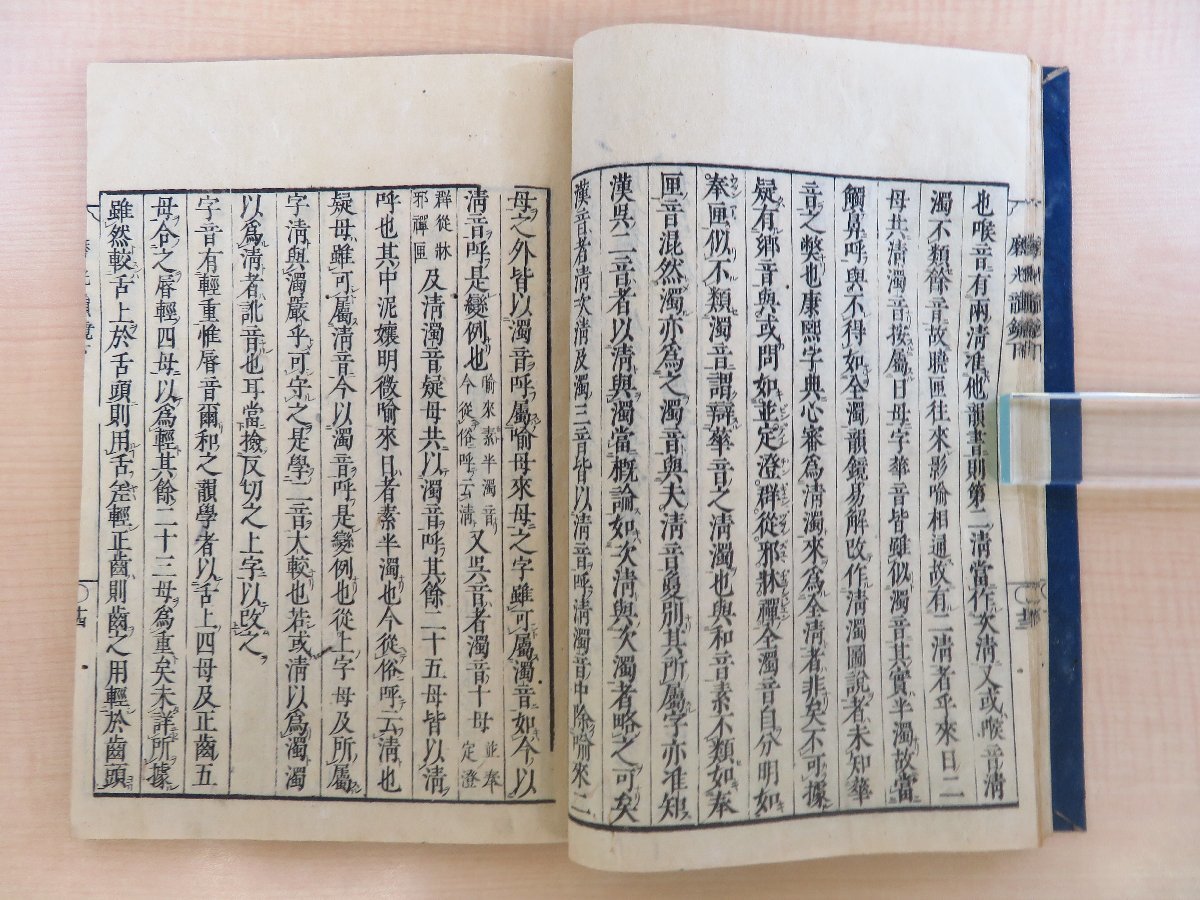 也喉音有兩淸准他韻書則第二淸當作次淸又或喉音淸
濁不類餘音故曉匣往來影喻相通故有二淸者乎來日二
母共淸濁音按屬日母字華音皆雖似濁音其實半濁故當
觸鼻呼與不得如全濁韻鏡易解改作淸濁圖說者未知華
音之弊也康熙字典心審爲淸濁來爲全淸者非矣不可據
疑有鄉音與或問如並定澄群從邪牀禪全濁音自分明如
奉匣似不類濁音謂辯華音之淸濁也與和音素不類如奉
匣音混然濁亦爲之濁音與夫淸音夐別其所屬字亦准知
漢吳二音者以淸與濁當概論如次淸與次濁者略之可矣
漢音者淸次淸及濁三音皆以淸音呼淸濁音中除喻來二
母之外皆以濁音呼屬喻母來母之字雖可屬濁音如今以
淸音呼是變例也喻來素半濁音今從俗呼云淸又吳音者濁音十母並奉定澄
群從牀邪禪匣及淸濁音疑母共以濁音呼其餘二十五母皆以淸
呼也其中泥孃明微喻來日者素半濁也今從俗呼云淸也
疑母雖可屬淸音今以濁音呼是變例也從上字母及所屬
字淸與濁嚴乎可守之是學二音大較也若或淸以爲濁濁
以爲淸者訛音也耳當撿反切之上字以改之
字音有輕重惟脣音爾和之韻學者以舌上四母及正齒五
母合之脣輕四母以爲輕其餘二十三母爲重矣未詳所據
雖然較舌上於舌頭則用舌差輕正齒則齒之用輕於齒頭